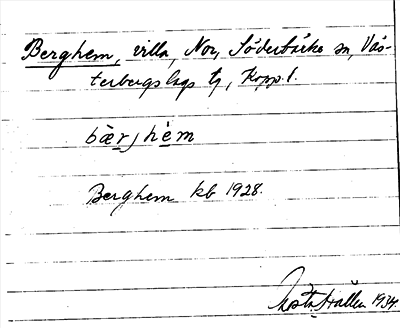 Berghem, villa, Nor, Söderbärke sn, Väs-
terbergslags tg, Kopp. l.
bær j hèm
Berghem kb 1928.
Gösta Hallén 1934.